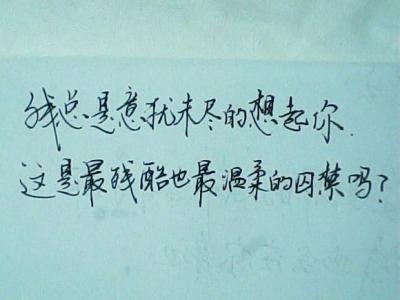 我总是意犹未尽的想起你.
这是最残酷也最温柔的囚禁吗?